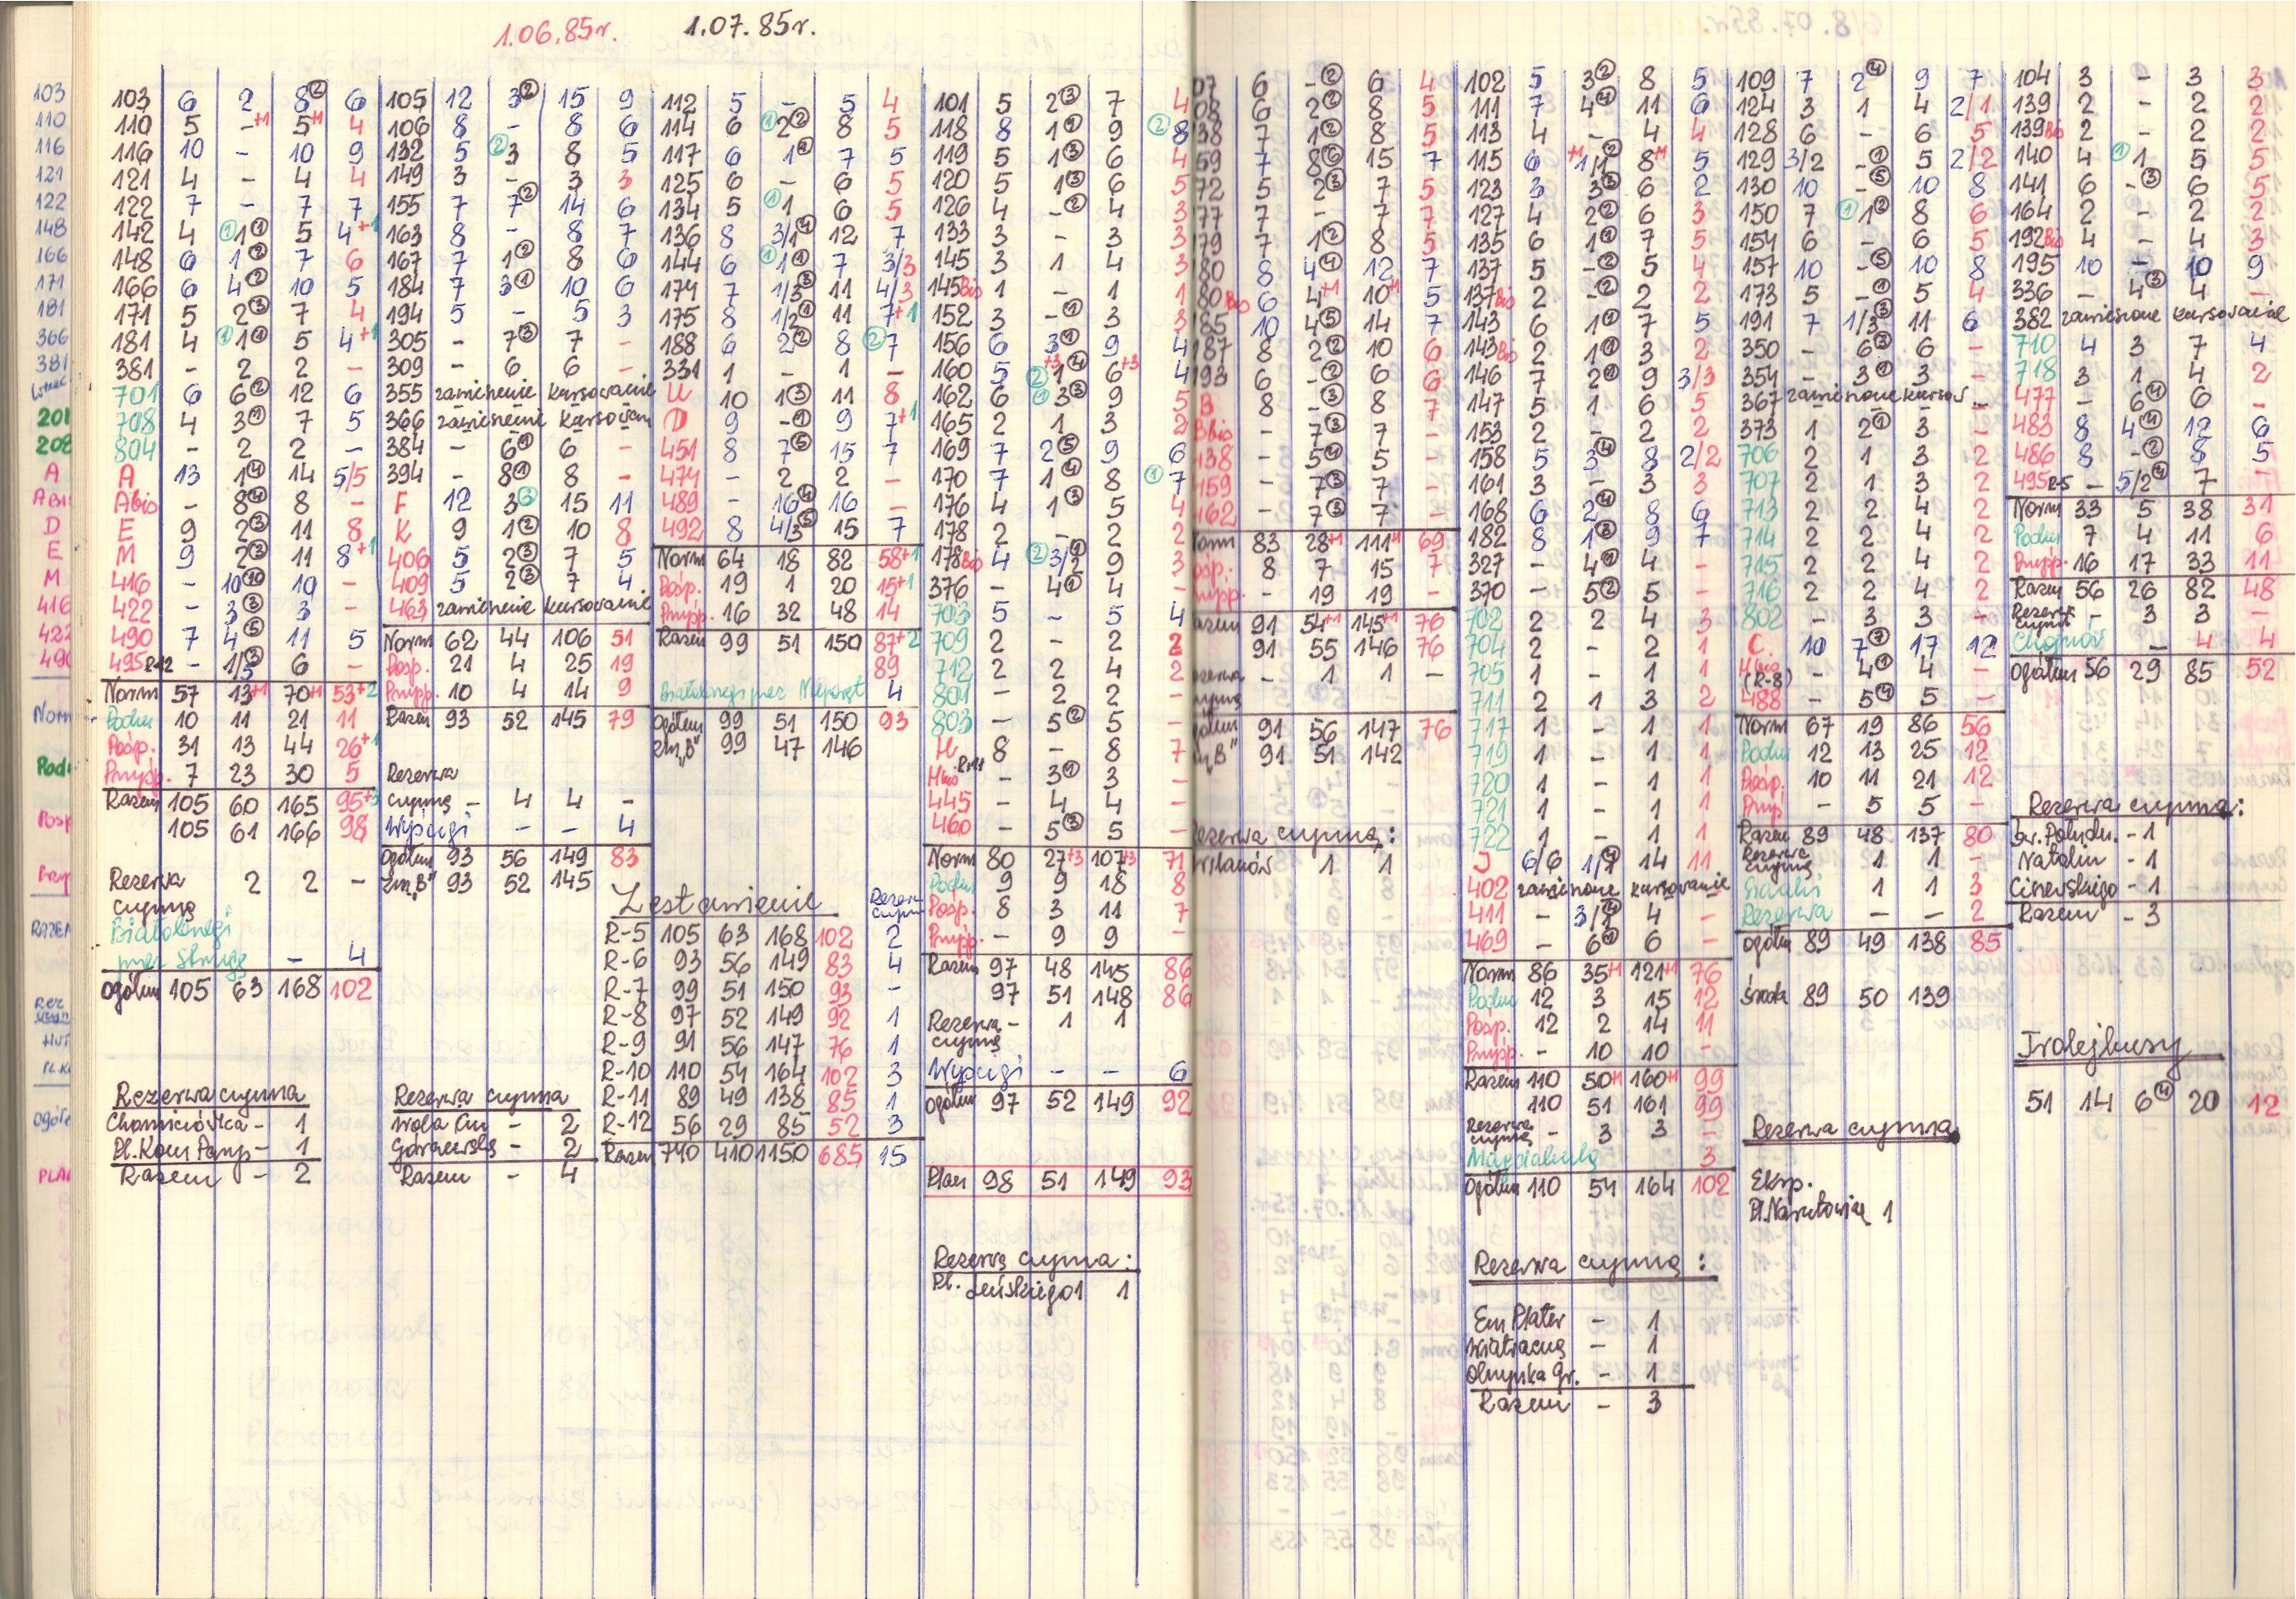 1.06.85r. 1.07.85r.
103 6 2 8② 6
110 5 -+1 5+1 4
116 10 - 10 9
121 4 - 4 4
122 7 - 7 7
142 4 ①1① 5 4+1
148 6 1② 7 6
166 6 4② 10 5
171 5 2③ 7 4
181 4 ①1① 5 4+1
381 - 2 2 -
701 6 6② 12 6
708 4 3① 7 5
804 - 2 2 -
A 13 1④ 14 5/5
Abis - 8④ 8 -
E 9 2③ 11 8
M 9 2③ 11 8+1
416 - 10⑩ 10 -
422 - 3③ 3 -
490 7 4⑤ 11 5
495 R-12 - 1/5③ 6 -
Norm 57 13+1 70+1 53+2
Podm 10 11 21 11
Pośp. 31 13 44 26+1
Przysp. 7 23 30 5
Razem 105 60 165 95+3
105 61 166 98
Rezerwa czynna 2 2 -
Białołęngi
przez Strugę - 4
Ogółem 105 63 168 102
Rezerwa czynna
Chomiczówka - 1
Pl. Kom Paryp - 1
Razem - 2
105 12 3② 15 9
106 8 - 8 6
132 5 ②3 8 5
149 3 - 3 3
155 7 7② 14 6
163 8 - 8 7
167 7 1② 8 6
184 7 3① 10 6
194 5 - 5 3
305 - 7③ 7 -
309 - 6 6 -
355 zawieszenie kursowanie
366 zawieszenie kursowan
384 - 6① 6 -
394 - 8① 8 -
F 12 3③ 15 11
K 9 1② 10 8
406 5 2③ 7 5
409 5 2③ 7 4
463 zawieszenie kursowanie
Norm 62 44 106 51
Pośp. 21 4 25 19
Przysp. 10 4 14 9
Razem 93 52 145 79
Rezerwa
czynna - 4 4 -
Wyścigi - - 4
Ogółem 93 56 149 83
Zm „B" 93 52 145
Rezerwa czynna
Wola Cm - 2
Górczewska - 2
Razem - 4
112 5 - 5 4
114 6 ①2② 8 5
117 6 1② 7 5
125 6 - 6 5
134 5 ①1 6 5
136 8 3/1④ 12 7
144 6 ①1① 7 3/3
174 7 1/3③ 11 4/3
175 8 1/2① 11 7+1
188 6 2② 8 ②7
331 1 - 1 -
U 10 1③ 11 8
D 9 -① 9 7+1
451 8 7⑤ 15 7
474 - 2 2 -
489 - 16④ 16 -
492 8 4/3⑤ 15 7
Norm 64 18 82 58+1
Pośp. 19 1 20 15+1
Przysp. 16 32 48 14
Razem 99 51 150 87+2
89
Białołengi przez Nieporęt 4
Ogółem 99 51 150 93
Zm „B" 99 47 146
Zestawienie Rezerwa czynna
R-5 105 63 168 102 2
R-6 93 56 149 83 4
R-7 99 51 150 93 -
R-8 97 52 149 92 1
R-9 91 56 147 76 1
R-10 110 54 164 102 3
R-11 89 49 138 85 1
R-12 56 29 85 52 3
Razem 740 410 1150 685 15
101 5 2③ 7 4
118 8 1① 9 ②8
119 5 1③ 6 4
120 5 1③ 6 5
126 4 -② 4 3
133 3 - 3 3
145 3 1 4 3
145Bis 1 - 1 1
152 3 -① 3 3
156 6 3① 9 4
160 5 ②1④+3 6+3 4
162 6 ①3③ 9 5
165 2 1 3 2
169 7 2⑤ 9 6
170 7 1④ 8 ①7
176 4 1③ 5 4
178 2 - 2 2
178Bis 4 ②3/2 9 3
376 - 4① 4 -
703 5 - 5 4
709 2 - 2 2
712 2 2 4 2
801 - 2 2 -
803 - 5② 5 -
H 8 - 8 7
Hbis R-11 - 3① 3 -
445 - 4 4 -
460 - 5③ 5 -
Norm 80 27+3 107+3 71
Podm 9 9 18 8
Pośp. 8 3 11 7
Przysp. - 9 9 -
Razem 97 48 145 86
97 51 148 86
Rezerwa - 1 1
czynna
Wyścigi - - 6
Ogółem 97 52 149 92
Plan 98 51 149 93
Rezerwa czynna :
Pl. Leńskiego 1 1
07 6 -② 6 4
08 6 2② 8 5
38 7 1② 8 5
59 7 8⑥ 15 7
72 5 2③ 7 5
77 7 - 7 7
79 7 1② 8 5
80 8 4④ 12 7
80Bis 6 4+1 10+1 5
185 10 4⑤ 14 7
187 8 2② 10 6
193 6 -② 6 6
B 8 -③ 8 7
Bbis - 7③ 7 -
438 - 5④ 5 -
459 - 7③ 7 -
462 - 7③ 7 -
Norm 83 28+1 111+1 69
Pośp. 8 7 15 7
Przysp. - 19 19 -
Razem 91 54+1 145+1 76
91 55 146 76
Rezerwa - 1 1 -
czynna
Ogółem 91 56 147 76
Zm „B" 91 51 142
Rezerwa czynna :
Wilanów 1 1
102 5 3② 8 5
111 7 4④ 11 6
113 4 - 4 4
115 6 +1 1/1② 8+1 5
123 3 3③ 6 2
127 4 2② 6 3
135 6 1① 7 5
137 5 -② 5 4
137Bis 2 -② 2 2
143 6 1① 7 5
143Bis 2 1① 3 2
146 7 2① 9 3/3
147 5 1 6 5
153 2 - 2 2
158 5 3④ 8 2/2
161 3 - 3 3
168 6 2④ 8 6
182 8 1③ 9 7
327 - 4① 4 -
370 - 5② 5 -
702 2 2 4 3
704 2 - 2 1
705 1 - 1 1
711 2 1 3 2
717 1 - 1 1
719 1 - 1 1
720 1 - 1 1
721 1 - 1 1
722 1 - 1 1
J 6/6 1/1④ 14 11
402 zawieszone kursowanie
411 - 3/1④ 4 -
469 - 6① 6 -
Norm 86 35+1 121+1 76
Podm 12 3 15 12
Pośp. 12 2 14 11
Przysp. - 10 10 -
Razem 110 50+1 160+1 99
110 51 161 99
Rezerwa czynna - 3 3 -
Magdalenka 3
Ogółem 110 54 164 102
Rezerwa czynna :
Em Plater - 1
Wiatraczna - 1
Olimpijka Gr. - 1
Razem - 3
109 7 2④ 9 7
124 3 1 4 2/1
128 6 - 6 5
129 3/2 -① 5 2/2
130 10 -⑤ 10 8
150 7 ①1② 8 6
154 6 - 6 5
157 10 -⑤ 10 8
173 5 -① 5 4
191 7 1/3③ 11 6
350 - 6③ 6 -
354 - 3① 3 -
367 zawieszone kursow. -
373 1 2① 3 -
706 2 1 3 2
707 2 1 3 2
713 2 2 4 2
714 2 2 4 2
715 2 2 4 2
716 2 2 4 2
802 - 3 3 -
C. 10 7⑦ 17 12
Hbis (R-8) - 4① 4 -
488 - 5④ 5 -
Norm 67 19 86 56
Podm 12 13 25 12
Pośp. 10 11 21 12
Przysp - 5 5 -
Razem 89 48 137 80
Rezerwa czynna 1 1 -
1 1 3
Rezerwa - - 2
Ogółem 89 49 138 85
Środa 89 50 139
Rezerwa czynna
Eksp.
Pl. Narutowicza 1
104 3 - 3 3
139 2 - 2 2
139Bis 2 - 2 2
140 4 ①1 5 5
141 6 -③ 6 5
164 2 - 2 2
192Bis 4 - 4 3
195 10 - 10 9
336 - 4③ 4 -
382 zawieszone kursowanie
710 4 3 7 4
718 3 1 4 2
477 - 6④ 6 -
483 8 4④ 12 6
486 8 -② 8 5
495 R-5 - 5/2④ 7 -
Norm 33 5 38 31
Podm 7 4 11 6
Przysp. 16 17 33 11
Razem 56 26 82 48
Rezerwa czynna - 3 3 -
Chojnów - 4 4
Ogółem 56 29 85 52
Rezerwa czynna :
Dw. Połudn. - 1
Natolin - 1
Ciszewskiego - 1
Razem - 3
Trolejbusy
51 14 6④ 20 12